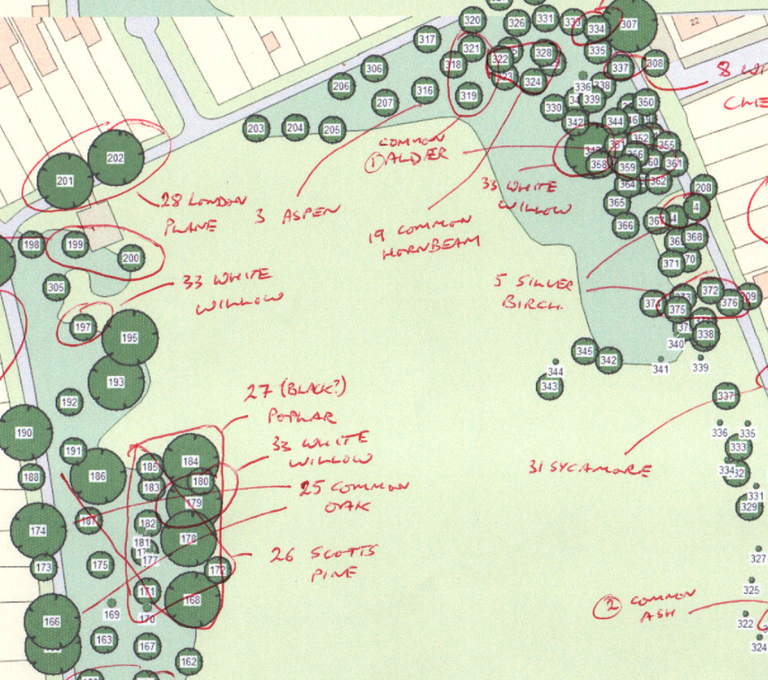 320
326
331
333
334
307
22
317
321
322
328
335
318
337
308
306
8
206
316
324
207
319
336
338
339
350
330
342
344
203
204
205
COMMON
① ALDER
352
355
202
368
359
361
201
364
362
33 WHITE
WILLOW
208
28 LONDON
PLANE
3 ASPEN
365
4
366
19 COMMON
HORNBEAM
368
198
199
200
371
70
305
33 WHITE
WILLOW
5 SILVER
BIRCH.
372
376
375
197
195
338
340
345
342
341
339
344
343
193
27 (BLACK?)
POPLAR
337
192
190
336
335
33 WHITE
WILLOW
333
191
184
185
186
188
180
183
31 SYCAMORE
334
331
25 COMMON
OAK
179
329
187
182
174
178
181
26 SCOTTS
PINE
177
327
173
175
172
171
168
325
169
170
② COMMON
ASH
166
322
163
167
324
162